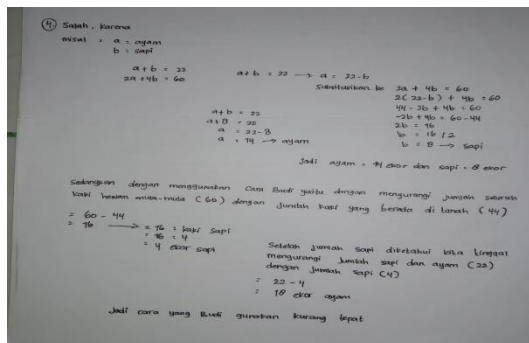 4. Salah, karena
misal : a = ayam
b = sapi
a + b = 22
2a + 4b = 60
a + b = 22 → a = 22 - b
Substitusikan ke 2a + 4b = 60
2(22-b) + 4b = 60
44 - 2b + 4b = 60
-2b + 4b = 60 - 44
2b = 16
b = 16 / 2
b = 8 → sapi
a + b = 22
a + 8 = 22
a = 22 - 8
a = 14 → ayam
Jadi ayam = 14 ekor dan sapi = 8 ekor
Sedangkan dengan menggunakan cara Budi yaitu dengan mengurangi jumlah seluruh
kaki hewan mula-mula (60) dengan jumlah kaki yang berada di tanah (44)
= 60 - 44
= 16 → = 16 : kaki sapi
= 16 : 4
= 4 ekor sapi
Setelah jumlah sapi diketahui kita tinggal
mengurangi jumlah sapi dan ayam (22)
dengan jumlah sapi (4)
= 22 - 4
= 18 ekor ayam
Jadi cara yang Budi gunakan kurang tepat